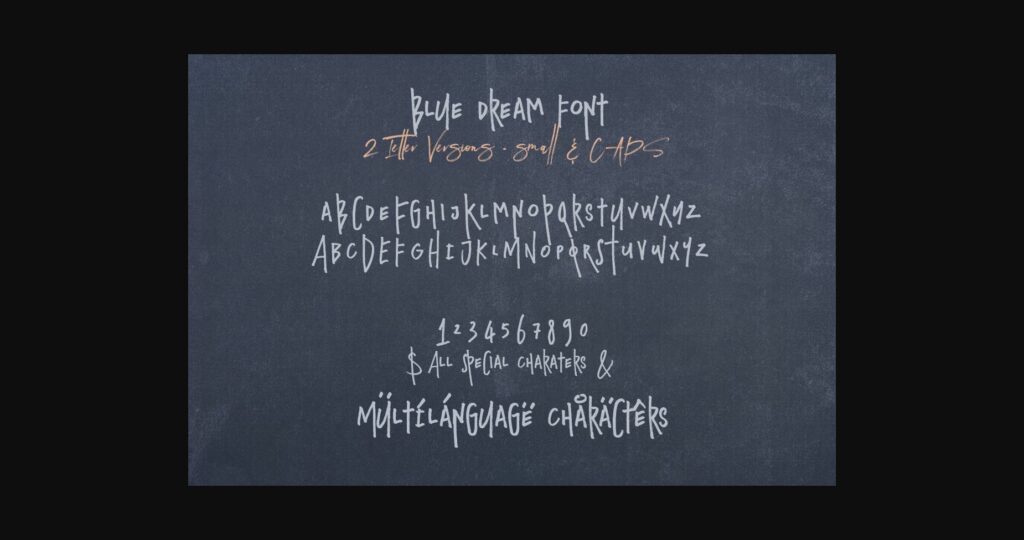 BLUE DREAM FONT
2 letter Versions - small & CAPS
ABCDEFGHIJKLMNOPQRSTUVWXYZ
ABCDEFGHIJKLMNOPQRSTUVWXYZ
1234567890
$ ALL SPECIAL CHARATERS &
MÜLTÍLÁNGUAGË CHÅRÄCTÊRS